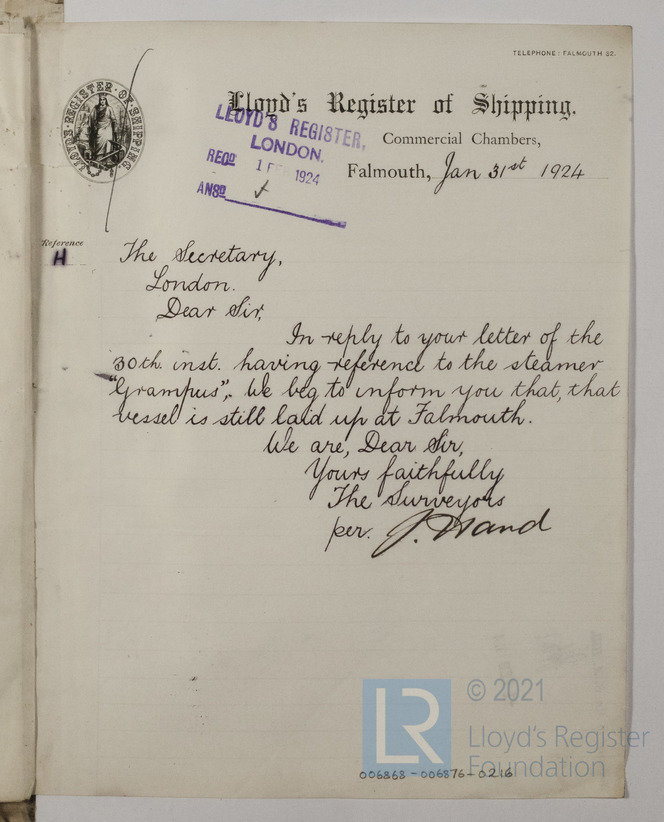 TELEPHONE: FALMOUTH 52.
LLOYD'S REGISTER OF SHIPPING
Lloyd's Register of Shipping.
Commercial Chambers,
Falmouth, Jan 31st 1924
LLOYD'S REGISTER,
LONDON.
RECD 1 FEB 1924
ANSD
Reference
H
The Secretary,
London.
Dear Sir,
In reply to your letter of the
30th. inst. having reference to the steamer
"Grampus", We beg to inform you that, that
vessel is still laid up at Falmouth.
We are, Dear Sir,
Yours faithfully
The Surveyors
per. J. Hand
LR
© 2021
Lloyd's Register
Foundation
006868-006876-0216